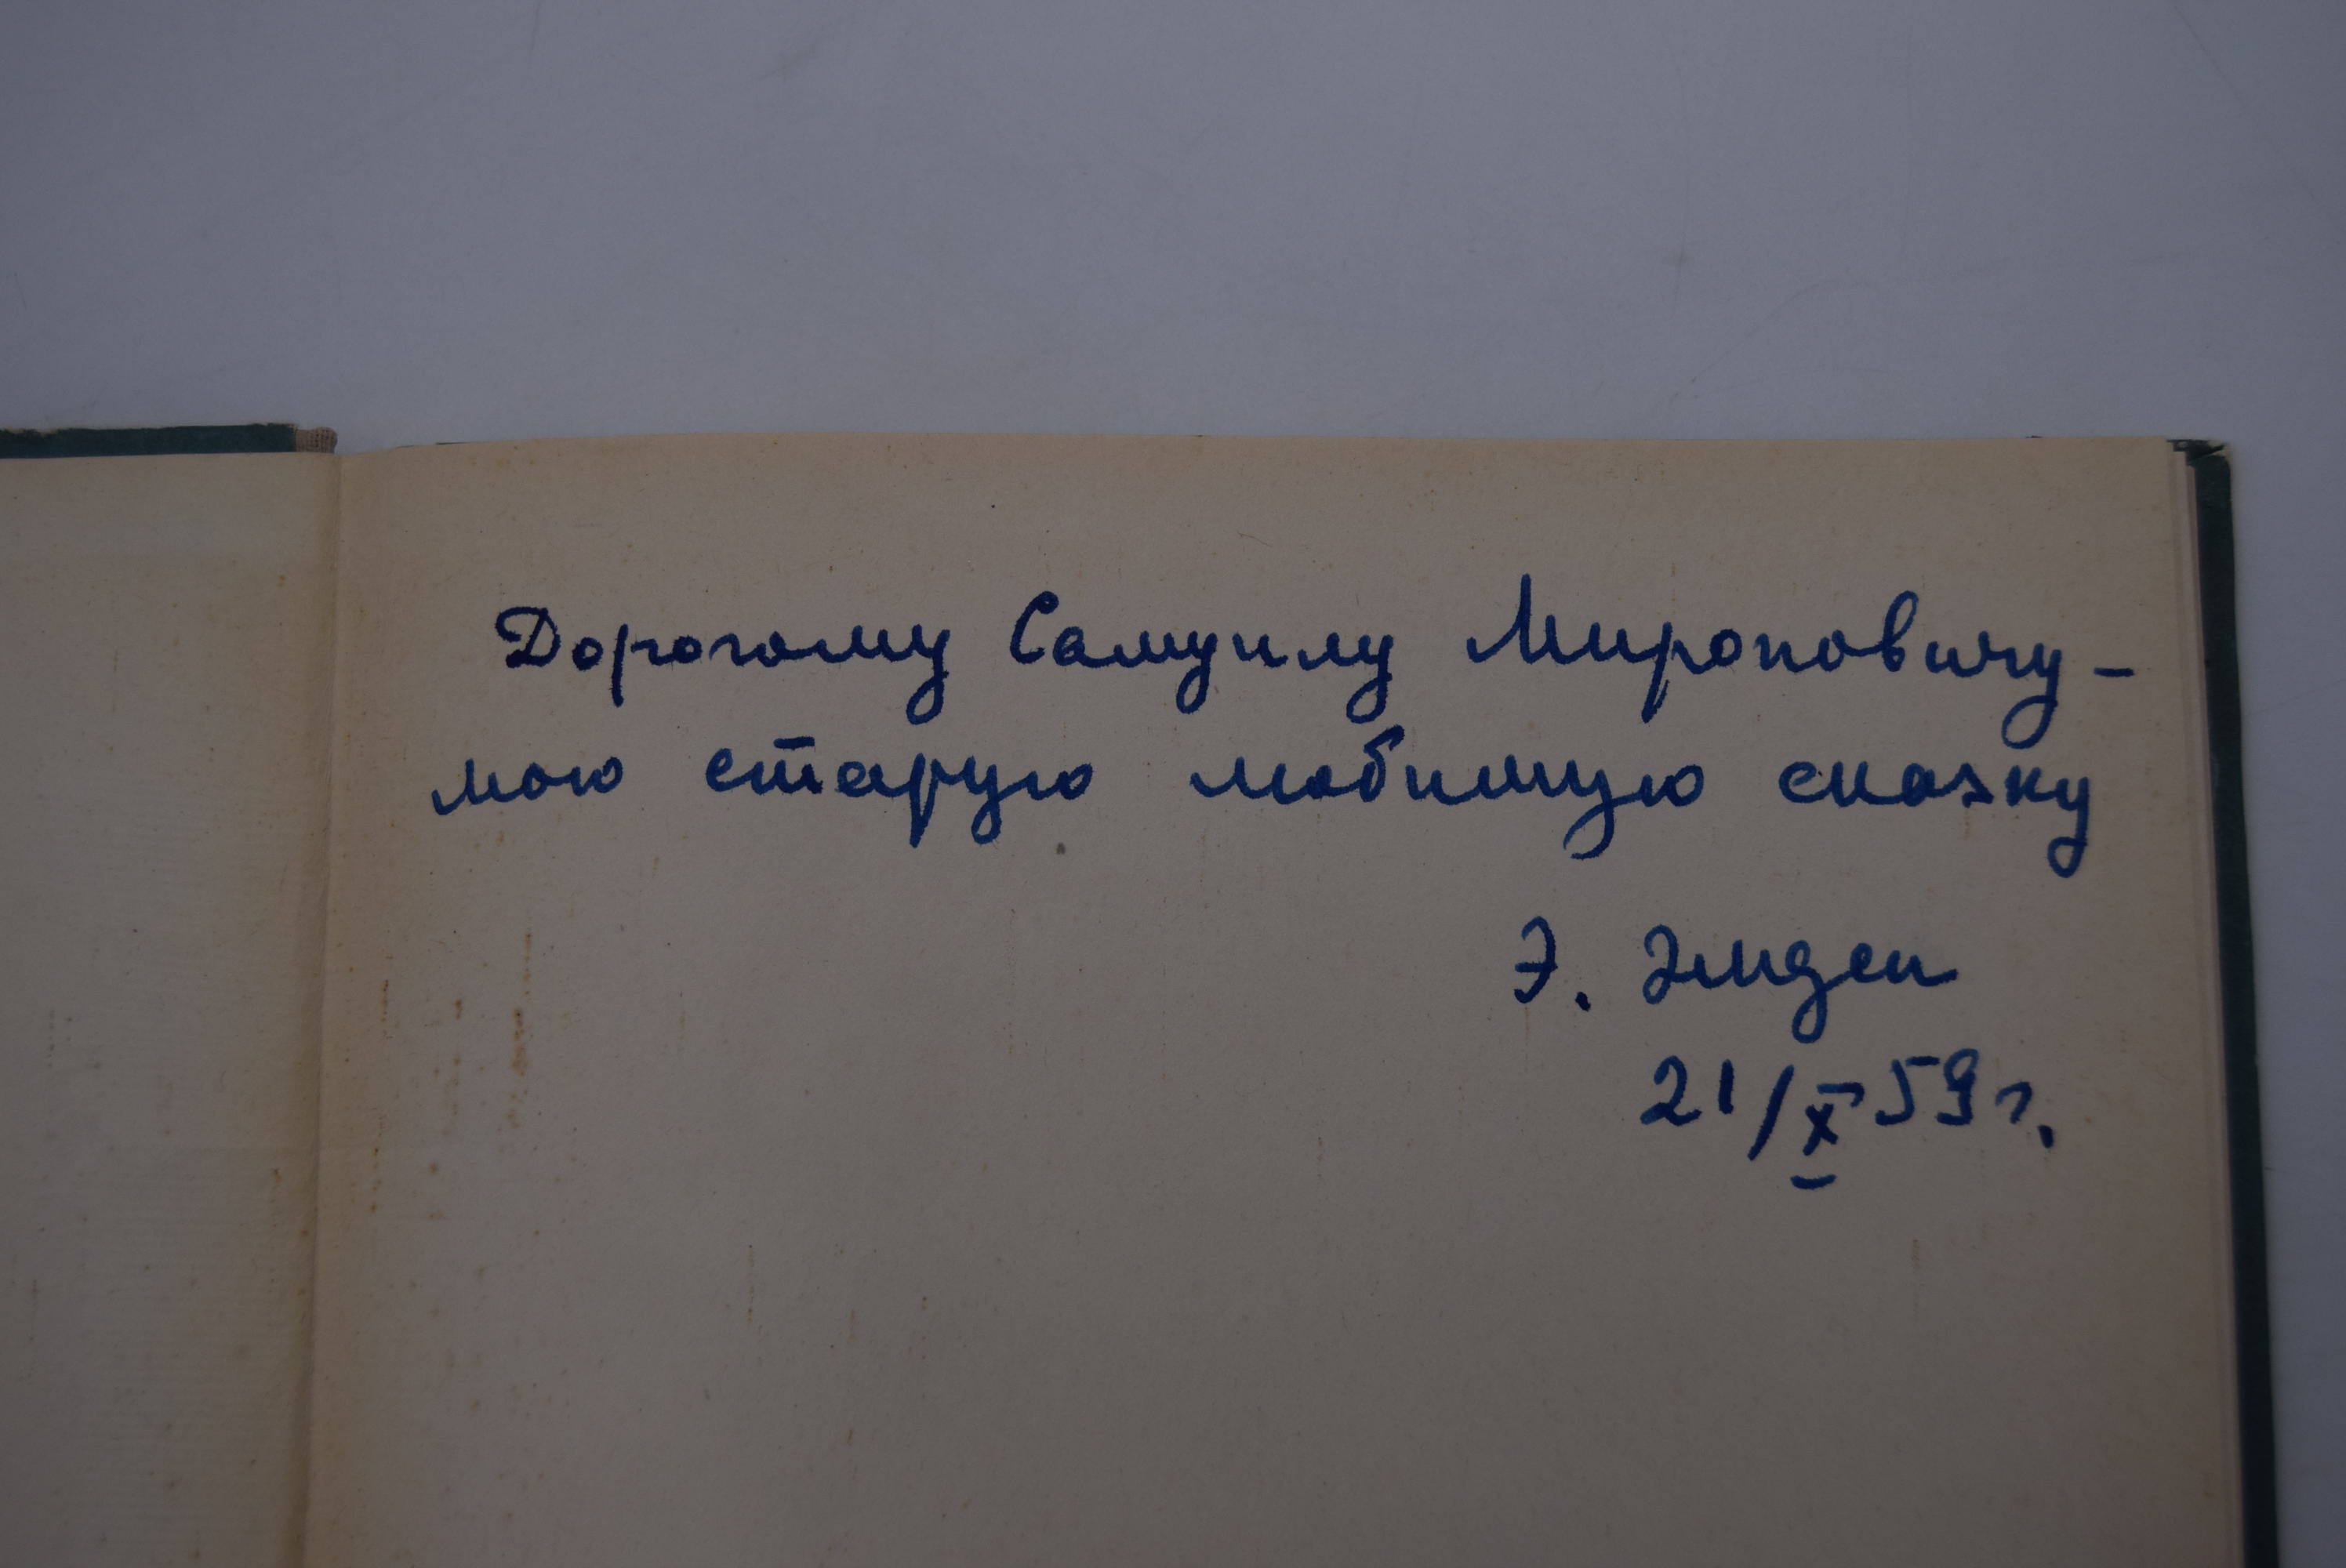 Дорогому Самуилу Мироновичу –
мою старую любимую сказку
Э. Эмден
21/X 59 г.